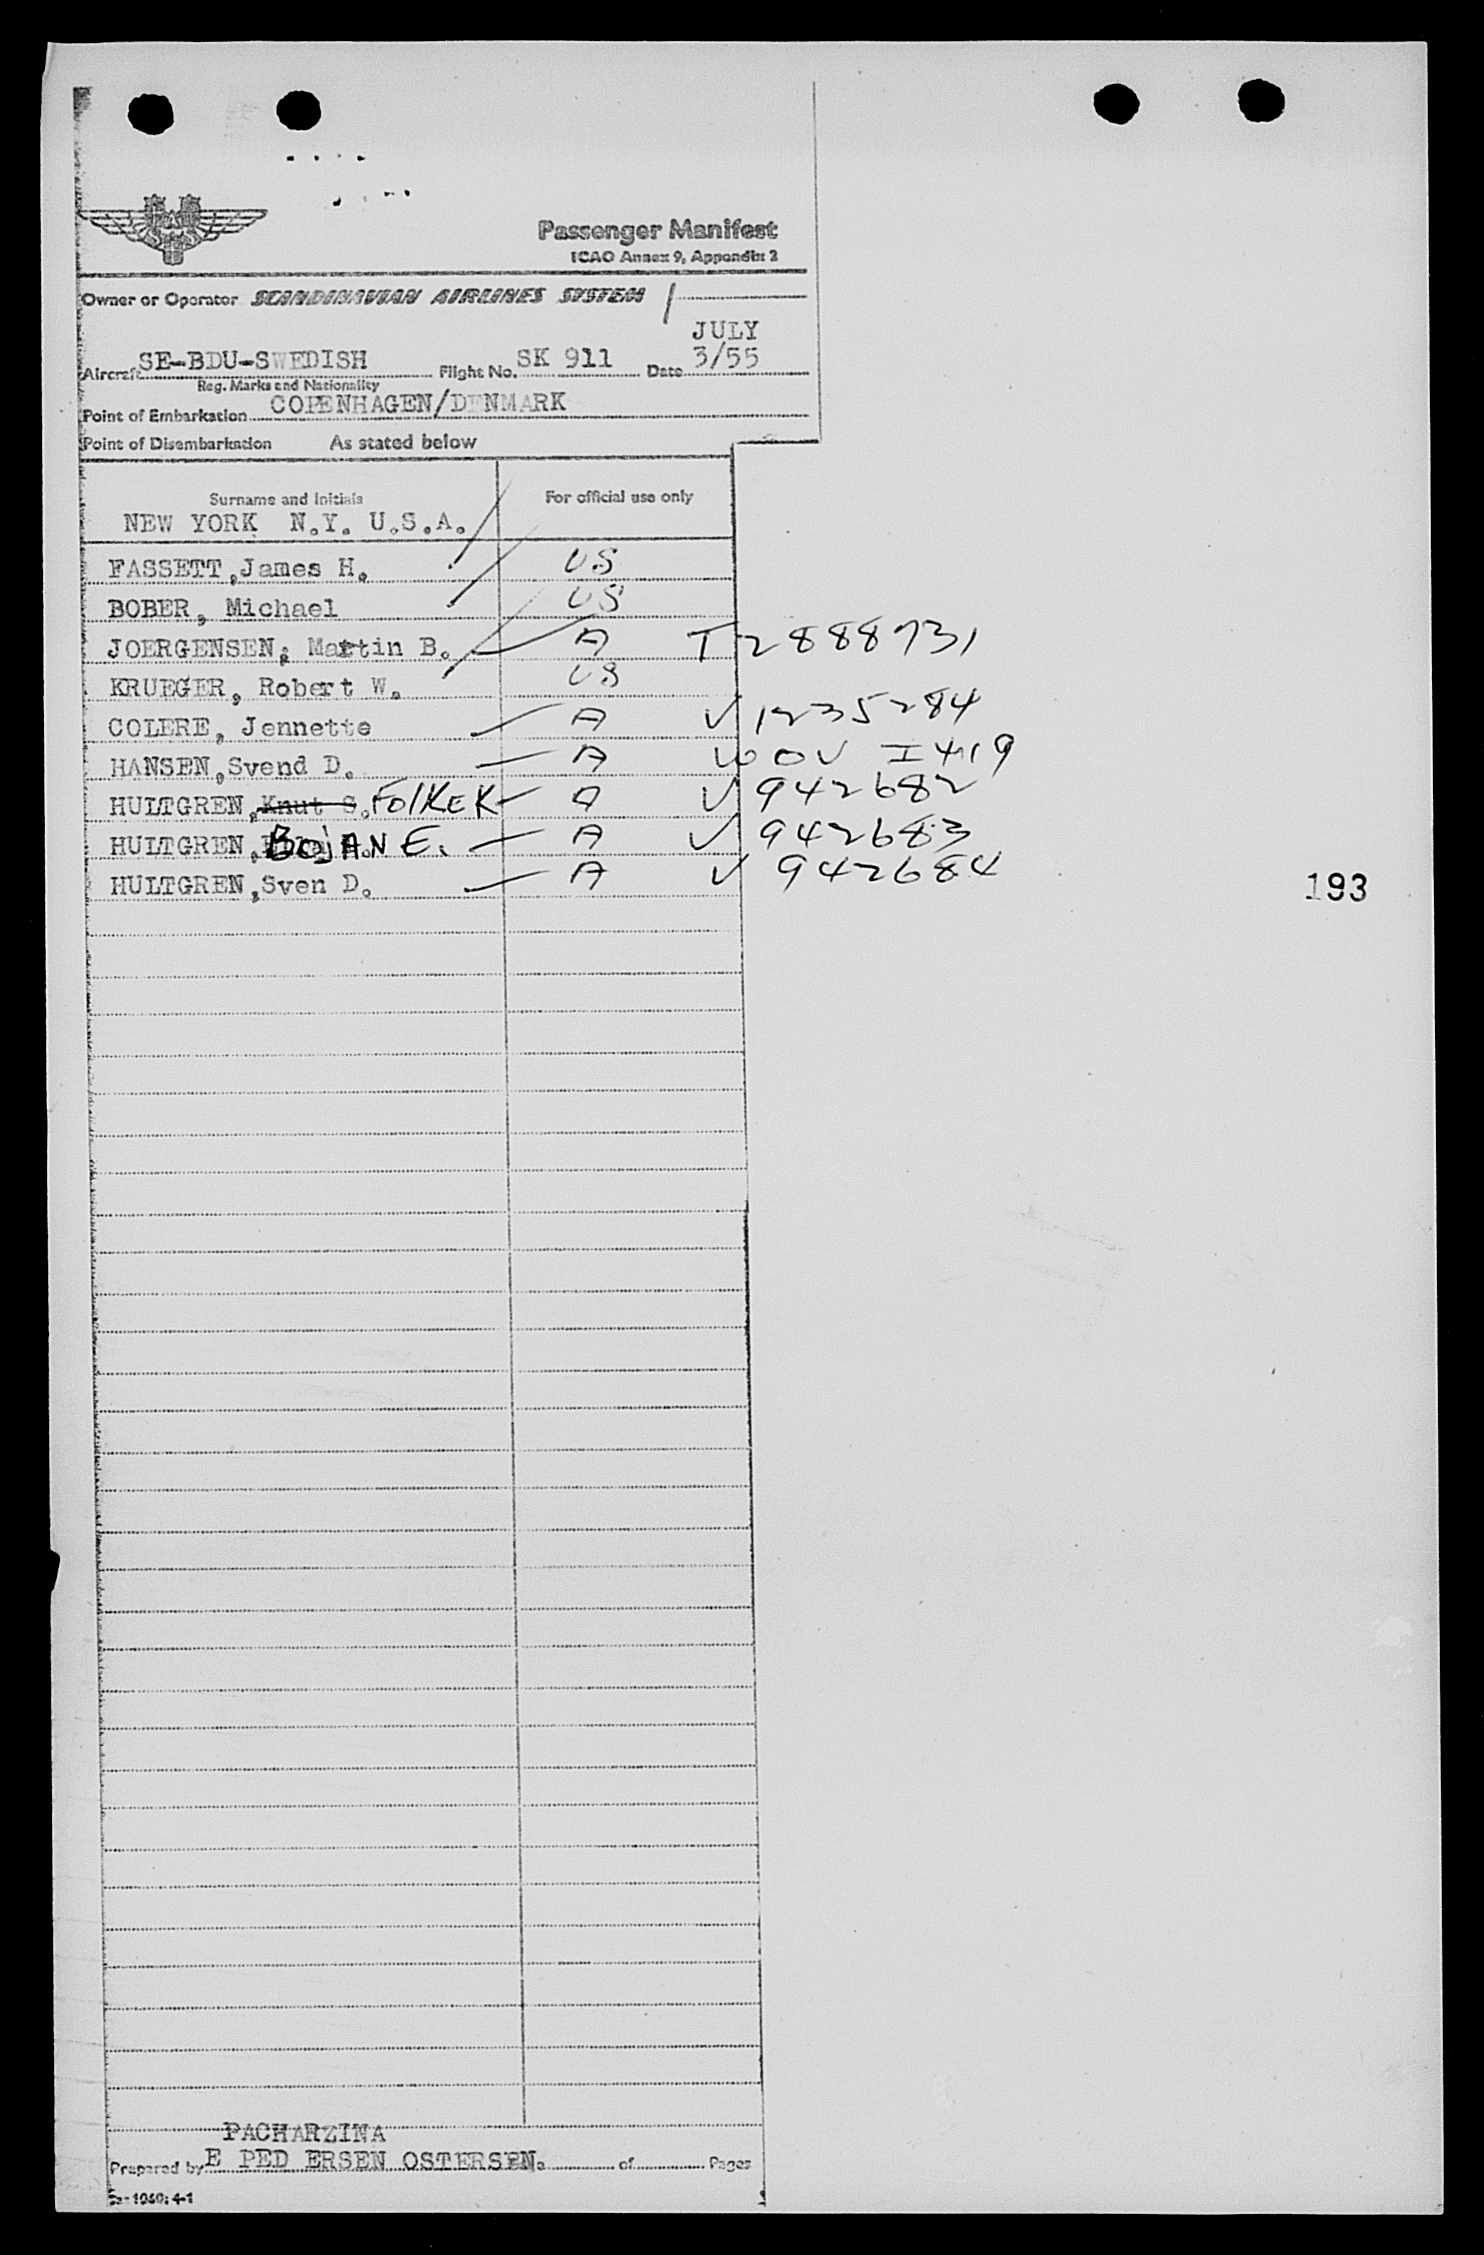 Passenger Manifest
ICAO Annex 9, Appendix 2
Owner or Operator SCANDINAVIAN AIRLINES SYSTEM
JULY
Aircraft SE-BDU-SWEDISH Flight No. SK 911 Date 3/55
Reg. Marks and Nationality
Point of Embarkation COPENHAGEN/DENMARK
Point of Disembarkation As stated below
Surname and Initials For official use only
NEW YORK N.Y. U.S.A.
FASSETT,James H. US
BOBER, Michael US
JOERGENSEN, Martin B. A T2888731
KRUEGER, Robert W. US
COLERE, Jennette A V 1235284
HANSEN,Svend D. A WOV I419
HULTGREN,Knut S. FOLKE K A V 942682
HULTGREN, BOJAN E. A V 942683
HULTGREN,Sven D. A V 942684
193
PACHARZINA
Prepared by E PED ERSEN OSTERSEN of Pages
1040: 4-1